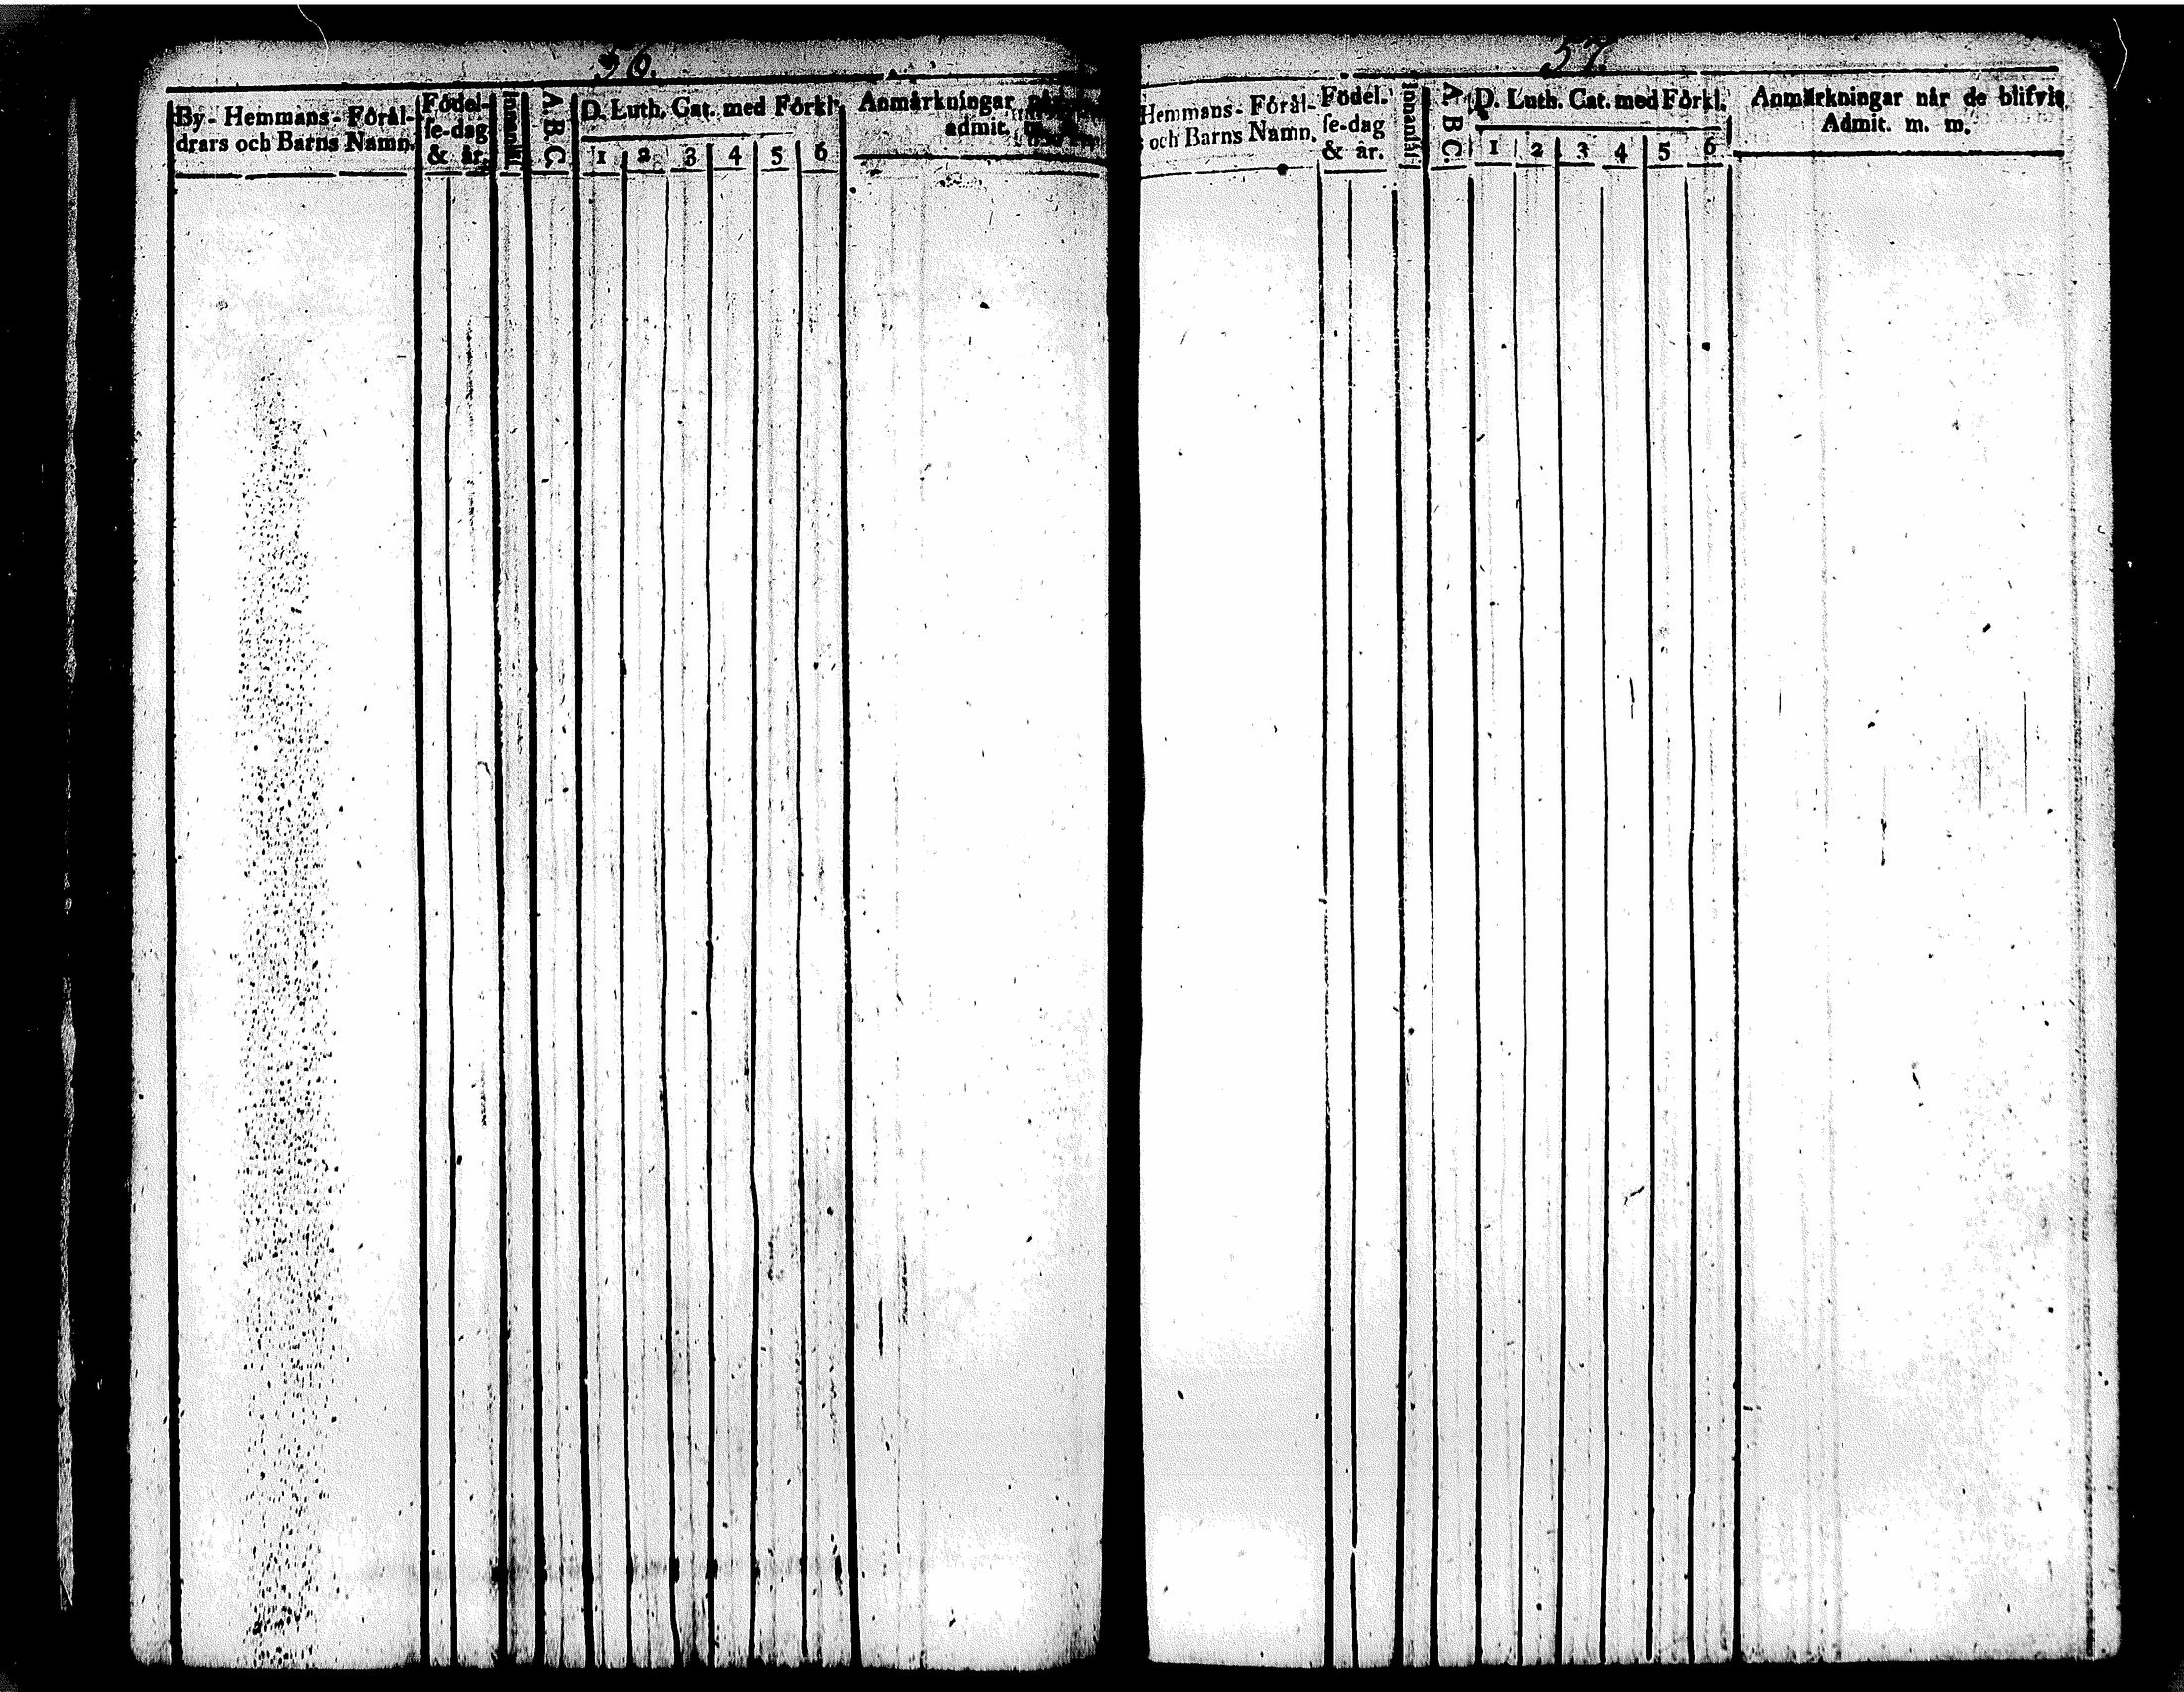 36.
By- Hemmans- Förål-
drars och Barns Namn.
Födel-
se-dag
& år.
A B C
D. Luth. Cat. med Förkl.
1 2 3 4 5 6
Anmärkningar
admit.
37.
Hemmans- Förål-
och Barns Namn.
Födel-
se-dag
& år.
A B C.
D. Luth. Cat. med Förkl.
1 2 3 4 5 6
Anmärkningar når de blifvit
Admit. m. m.